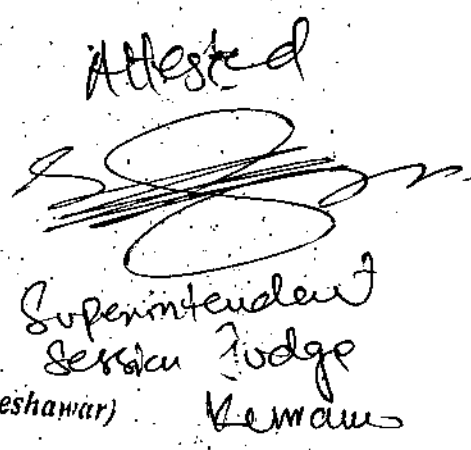 Attested
Superintendent
Session Judge
eshawar)